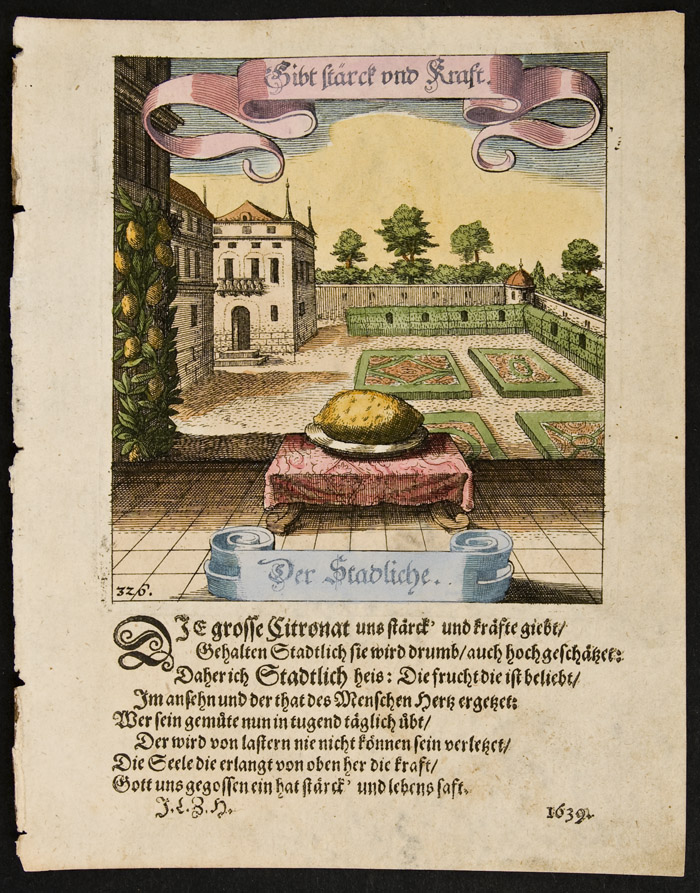 Gibt stärck vnd Kraft.
Der Stadliche.
326.
DJE grosse Citronat uns stärck' und kräfte giebt/
Gehalten Stadtlich sie wird drumb/auch hoch geschätzet:
Daher ich Stadtlich heis: Die frucht die ist beliebt/
Jm ansehn und der that des Menschen Hertz ergetzet:
Wer sein gemüte nun in tugend täglich übt/
Der wird von lastern nie nicht können sein verletzet/
Die Seele die erlangt von oben her die kraft/
Gott uns gegossen ein hat stärck' und lebens saft.
J. L. Z. H.
1639.